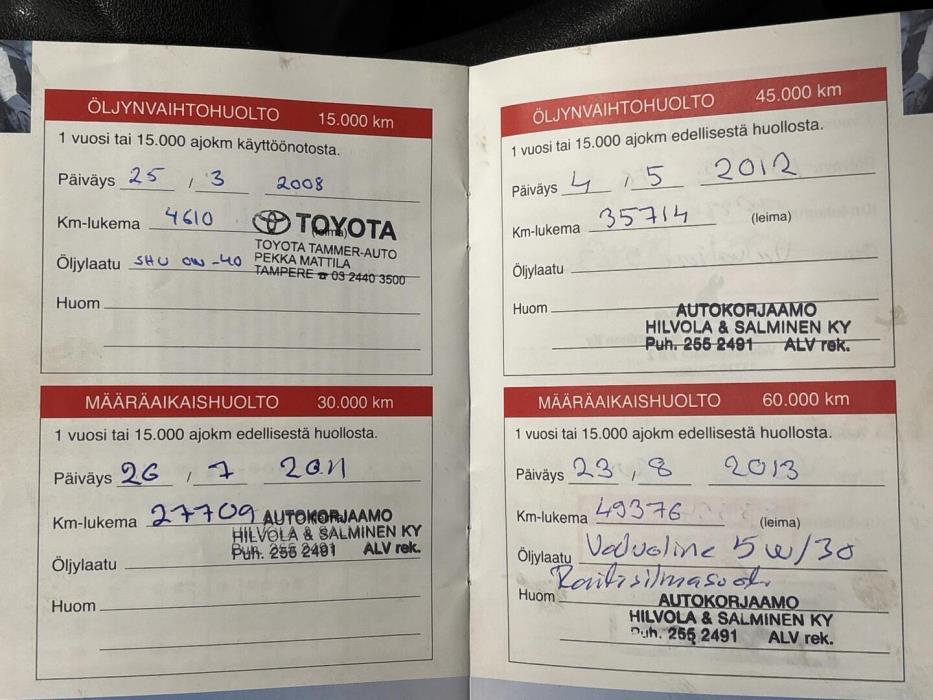 ÖLJYNVAIHTOHUOLTO 15.000 km
1 vuosi tai 15.000 ajokm käyttöönotosta.
Päiväys 25 / 3 2008
Km-lukema 4610 (leima)
TOYOTA
TOYOTA TAMMER-AUTO
PEKKA MATTILA
TAMPERE ☎ 03 2440 3500
Öljylaatu SHU OW-40
Huom
MÄÄRÄAIKAISHUOLTO 30.000 km
1 vuosi tai 15.000 ajokm edellisestä huollosta.
Päiväys 26 / 7 2011
Km-lukema 27709
AUTOKORJAAMO
HILVOLA & SALMINEN KY
Puh. 255 2491 ALV rek.
Öljylaatu
Huom
ÖLJYNVAIHTOHUOLTO 45.000 km
1 vuosi tai 15.000 ajokm edellisestä huollosta.
Päiväys 4 / 5 2012
Km-lukema 35714 (leima)
Öljylaatu
Huom
AUTOKORJAAMO
HILVOLA & SALMINEN KY
Puh. 255 2491 ALV rek.
MÄÄRÄAIKAISHUOLTO 60.000 km
1 vuosi tai 15.000 ajokm edellisestä huollosta.
Päiväys 23 / 8 2013
Km-lukema 49376 (leima)
Öljylaatu Valvoline 5w/30
Raitisilmasuod.
Huom
AUTOKORJAAMO
HILVOLA & SALMINEN KY
Puh. 255 2491 ALV rek.